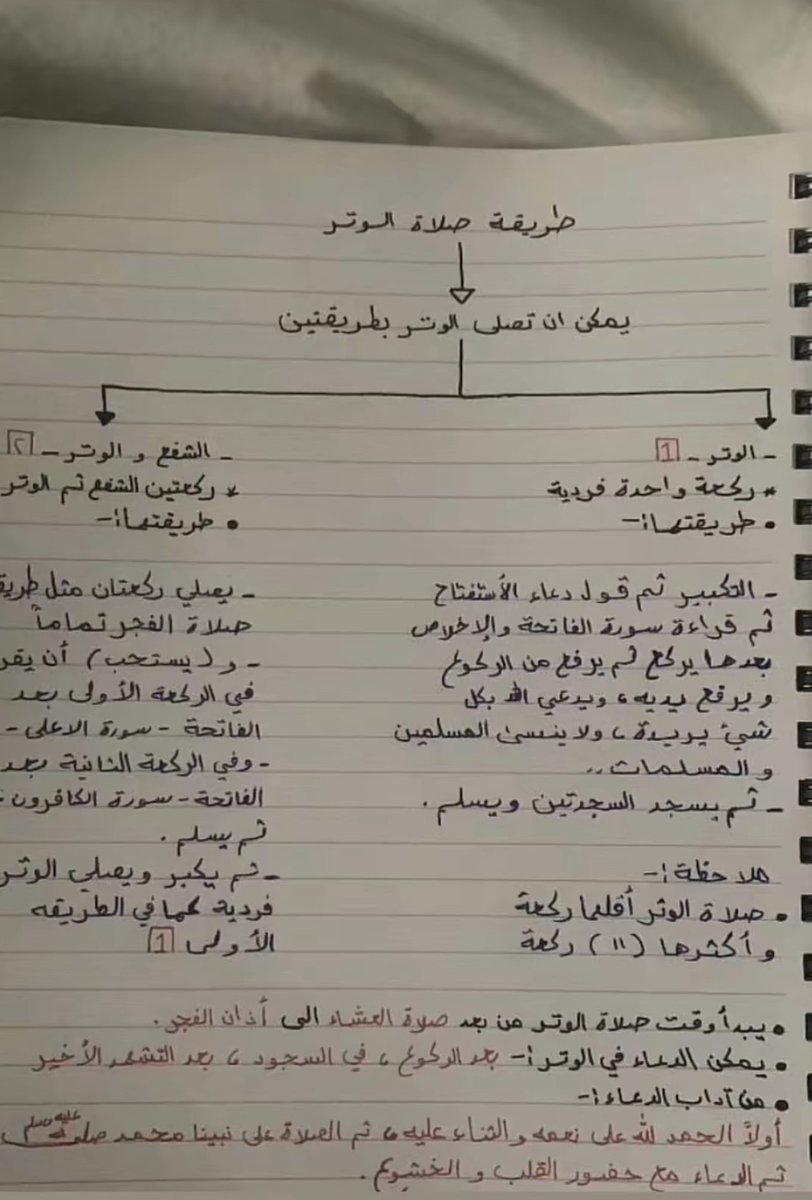 طريقة صلاة الوتر
يمكن ان تصلى الوتر بطريقتين
- الوتر - 1
* ركعة واحدة فردية
• طريقتها:-
- التكبير ثم قول دعاء الأستفتاح
ثم قراءة سورة الفاتحة والإخلاص
بعدها يركع ثم يرفع من الركوع
ويرفع يديه، ويدعي الله بكل
شيء يريدة، ولا ينسى المسلمين
والمسلمات..
- ثم يسجد السجدتين ويسلم.
ملاحظة:-
• صلاة الوتر أقلها ركعة
وأكثرها (١١) ركعة
- الشفع و الوتر - ٢
* ركعتين الشفع ثم الوتر
• طريقتها:-
- يصلي ركعتان مثل
صلاة الفجر تماماً
- و(يستحب) أن
في الركعة الأولى بعد
الفاتحة - سورة الاعلى -
- وفي الركعة الثانية بعد
الفاتحة - سورة الكافرون -
ثم يسلم.
- ثم يكبر ويصلي الوتر
فردية كما في الطريقه
الأولى 1
• يبدأ وقت صلاة الوتر من بعد صلاة العشاء الى أذان الفجر.
• يمكن الدعاء في الوتر:- بعد الركوع، في السجود، بعد التشهد الأخير
• من آداب الدعاء:-
أولاً الحمد لله على نعمه والثناء عليه، ثم الصلاة على نبينا محمد صلى الله عليه وسلم
ثم الدعاء مع حضور القلب و الخشوع.